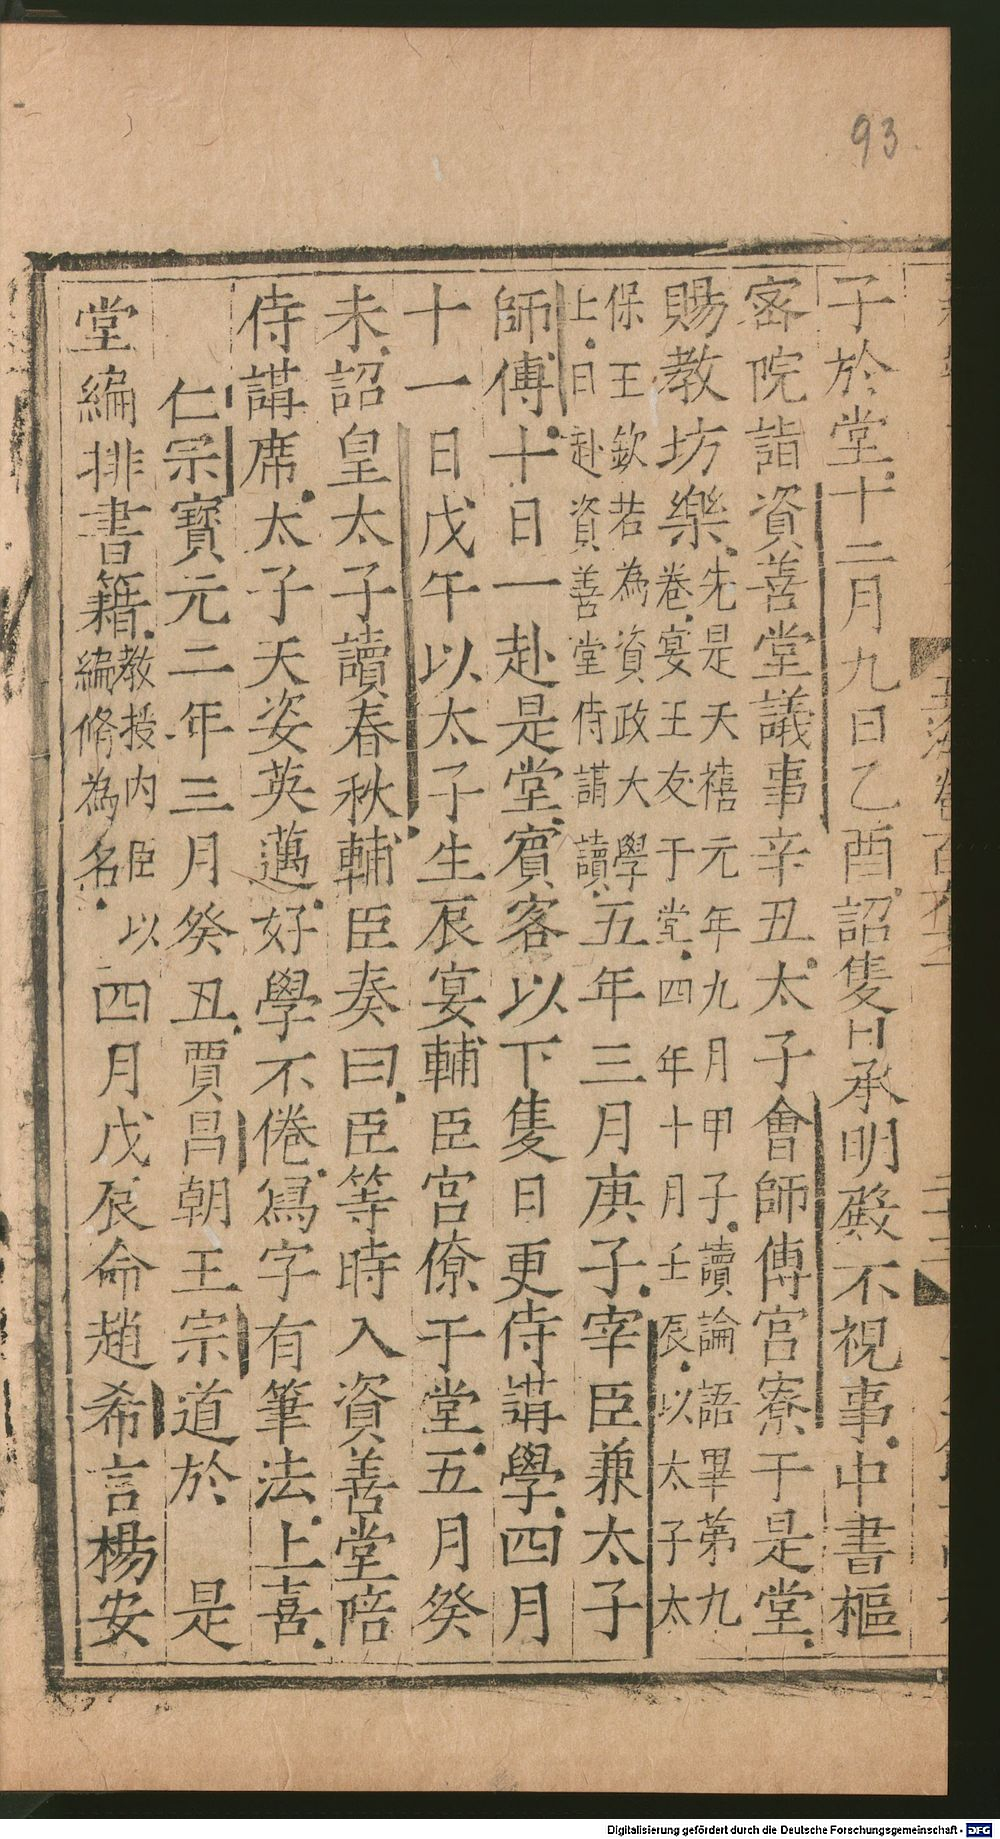 93
子於堂十二月九日乙酉詔隻日承明殿不視事中書樞
密院詣資善堂議事辛丑太子會師傅宮寮于是堂
賜教坊樂先是天禧元年九月甲子讀論語畢第九
卷宴王友于堂四年十月壬辰以太子太
保王欽若為資政大學
上日赴資善堂侍講讀五年三月庚子宰臣兼太子
師傅十日一赴是堂賓客以下隻日更侍講學四月
十一日戊午以太子生辰宴輔臣宮僚于堂五月癸
未詔皇太子讀春秋輔臣奏曰臣等時入資善堂陪
侍講席太子天姿英邁好學不倦爲字有筆法上喜
仁宗寶元二年三月癸丑賈昌朝王宗道於 是
堂編排書籍教授內臣以
編脩為名四月戊辰命趙希言楊安
Digitalisierung gefördert durch die Deutsche Forschungsgemeinschaft - DFG